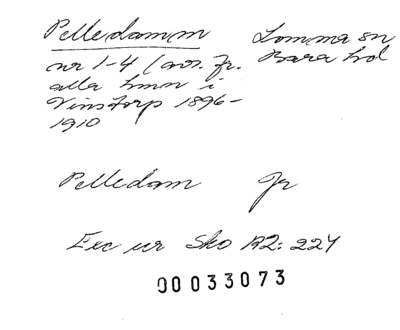 Pelledamm Lomma sn
nr 1-4 (avs. fr. Bara hd
alla hmn i
Vinstorp 1896-
1910
Pelledam Jr
Exc ur Sko R2: 224
00033073